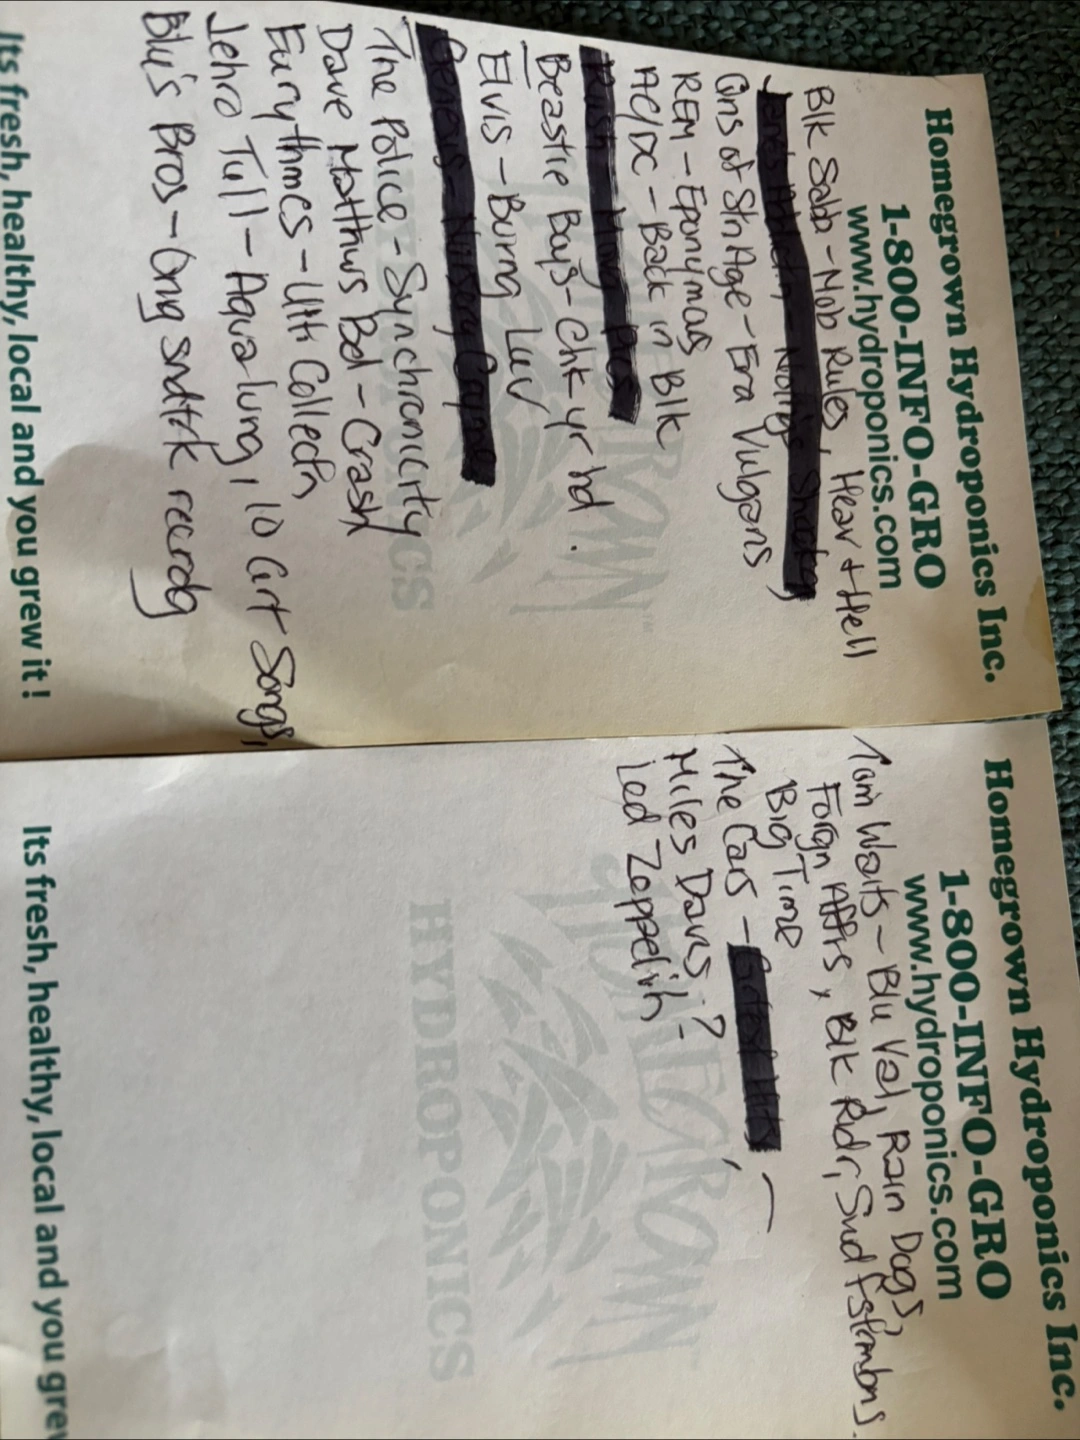 Homegrown Hydroponics Inc.
1-800-INFO-GRO
www.hydroponics.com
Blk Sabb - Mob Rules, Heav + Hell
Qns of Stn Age - Era Vulgaris
REM - Eponymous
AC/DC - Back in Blk
Beastie Boys - Chk yr hd.
Elvis - Burng Luv
The Police - Synchronicity
Dave Matthws Bd - Crash
Eurythmcs - Ult Collectn
Jehro Tull - Aqualung, 10 Grt Songs,
Blu's Bros - Orig sndtrk recrdg
HOMEGROWN
HYDROPONICS
Its fresh, healthy, local and you grew it!
Homegrown Hydroponics Inc.
1-800-INFO-GRO
www.hydroponics.com
Tom Waits - Blu Val, Rain Dogs,
Forgn Affrs, Blk Ridr,
Big Time
The Cars -
Miles Davis - ?
Led Zeppelin -
HOMEGROWN
HYDROPONICS
Its fresh, healthy, local and you grew